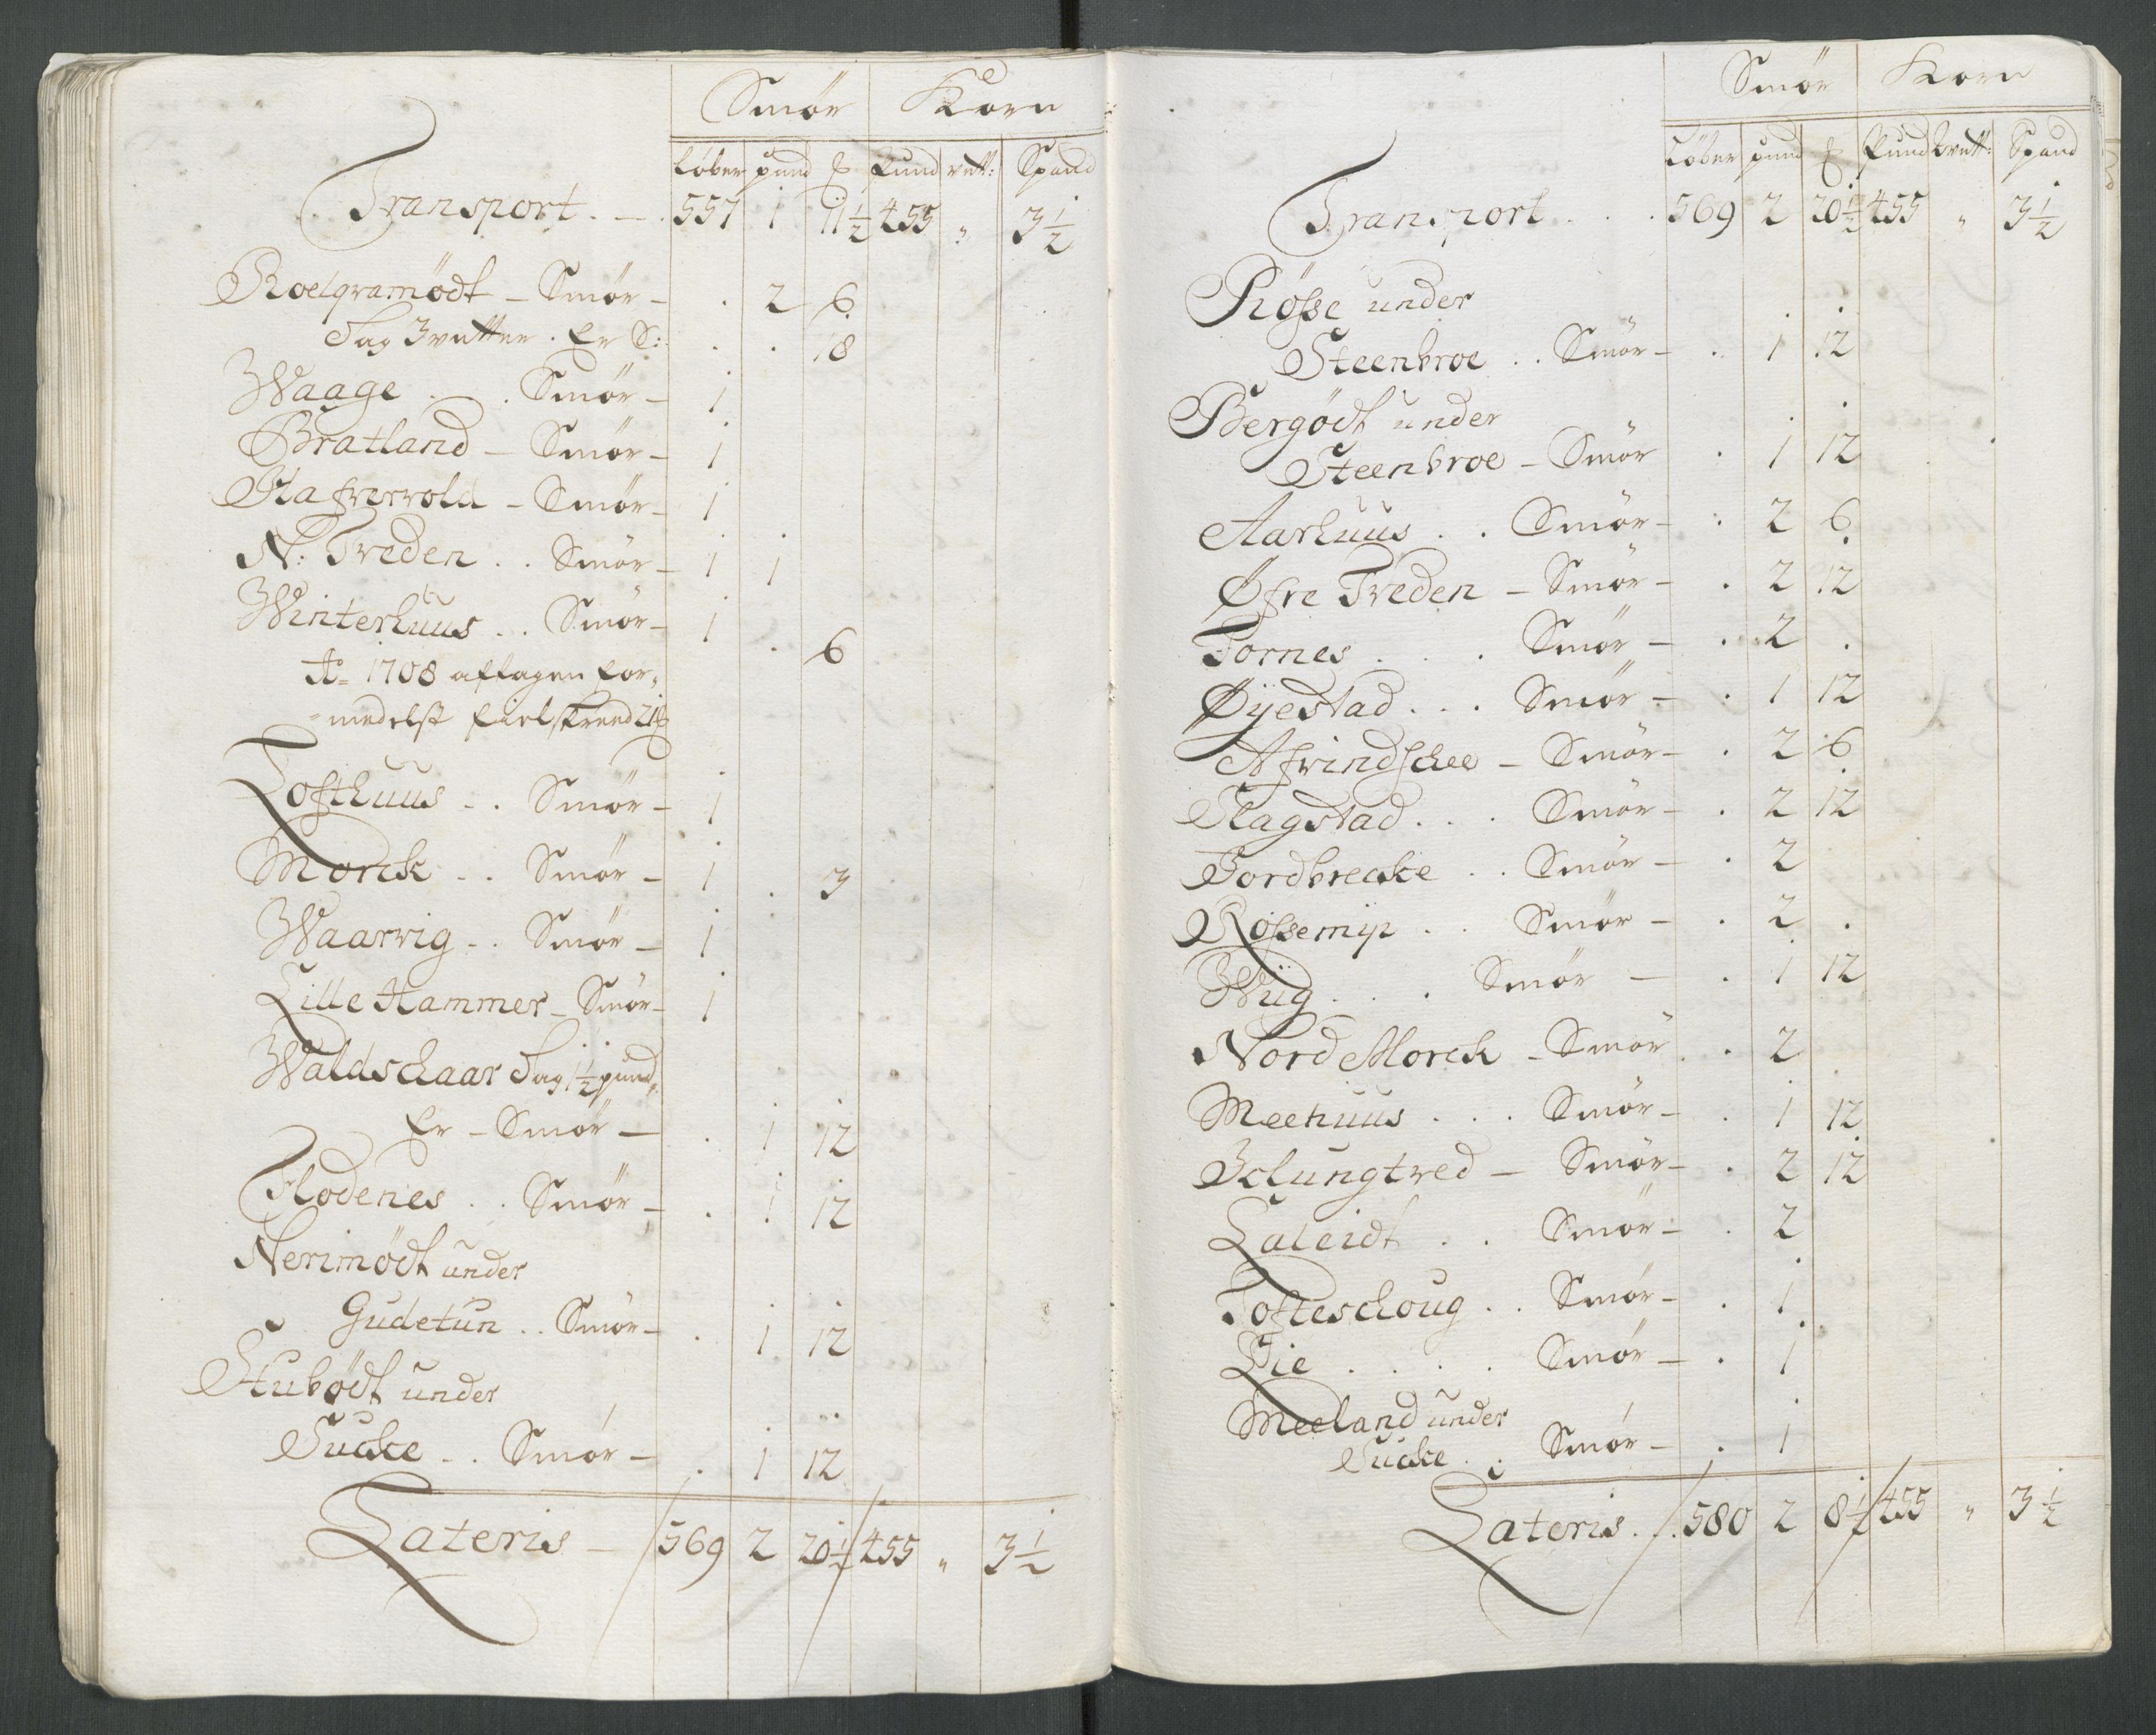 Smör Korn
Løber pund ℔ Pund vett: Spand
Transport . — . 557 1 11½ 455 „ 3½
Roelqvamödt — Smör — . 2 6
Sag 3 vetter . Er S: . . 18
Waage . . Smör — 1
Bratland — Smör — 1
Hafrevold — Smör — 1
N: Treden . . Smör — 1 1
Winterhuus . . Smör — 1 . 6
Ao 1708 aftagen for„
medelst Field skreed
Tofthuus . . Smör — 1
Morck . . Smör — 1 . 3
Waarvig . . Smör — 1
Lille Hammer — Smör — 1
Waldschaar Sag 1½ pund
Er — Smör — . 1 12
Flodenes . . Smör — . 1 12
Nerimödt under
Gudetun . . Smör — . 1 12
Stubödt under
Sucke . . Smör — . 1 12
Lateris — 569 2 20½ 455 „ 3½
Smör Korn
Løber pund ℔ Pund vett: Spand
Transport . . . 569 2 20½ 455 „ 3½
Rösse under
Steenbroe . . Smör — . 1 12
Bergödt under
Steenbroe — Smör . 1 12
Aarhuus . . Smör — . 2 6
Øfre Treden — Smör — . 2 12
Tornes . . . Smör — . 2 .
Øyestad . . . Smör — . 1 12
Afrindschee — Smör — . 2 6
Flagstad . . . Smör — . 2 12
Jordbrecke . . Smör — . 2
Rossemyr . . Smör — . 2 .
Wiig . . . Smör — . 1 12
Nord Morck — Smör . . 2
Meehuus . . . Smör — . 1 12
Klungtved — Smör — . 2 12
Laleidt . . Smör — . 2
Tofteschoug . . Smör — . 1
Lie . . . . Smör — . 1
Meeland under
Sucke . . Smör — . 1
Lateris . . 580 2 8½ 455 „ 3½